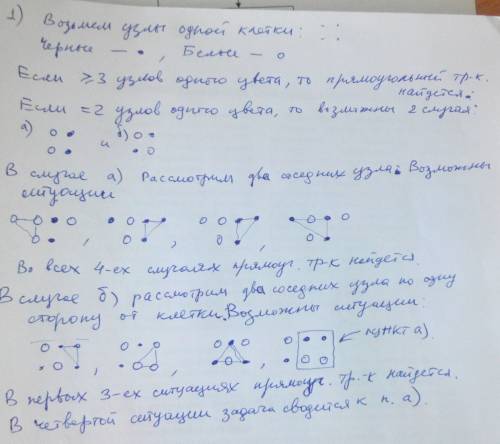 1) Возьмем узлы одной клетки:
Черные — •, Белые — о
Если ≥3 узлов одного цвета, то прямоугольный тр-к.
найдется.
Если =2 узлов одного цвета, то возможны 2 случая:
а) и б)
В случае а) Рассмотрим два соседних узла. Возможны
ситуации
Во всех 4-ех случаях прямоуг. тр-к найдется.
В случае б) рассмотрим два соседних узла по одну
сторону от клетки. Возможны ситуации:
пункт а).
В первых 3-ех ситуациях прямоуг. тр.-к найдется.
В четвертой ситуации задача сводится к п. а).